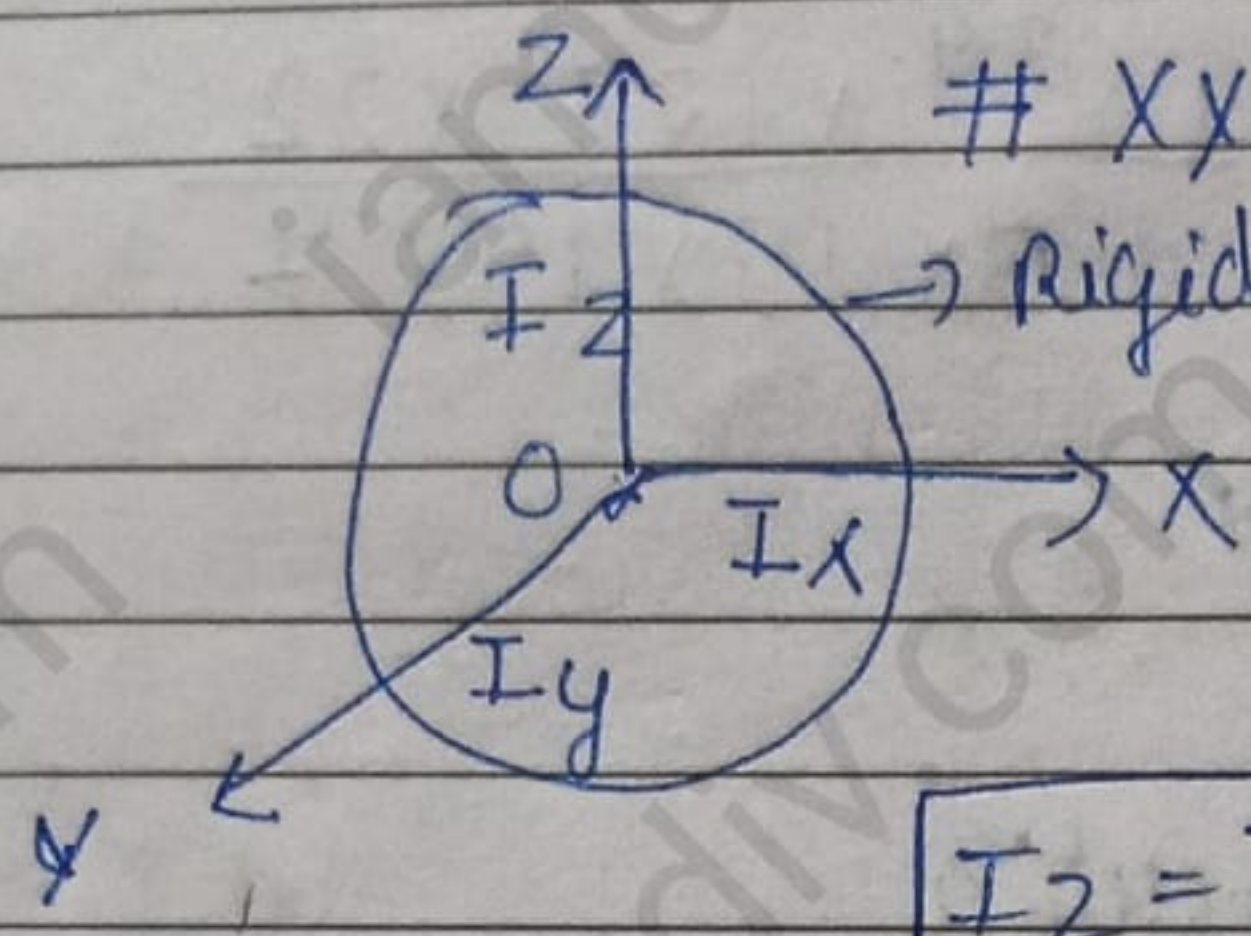 Z
# XY
I Z
→ Rigid
O
X
Ix
Iy
Y
Iz =